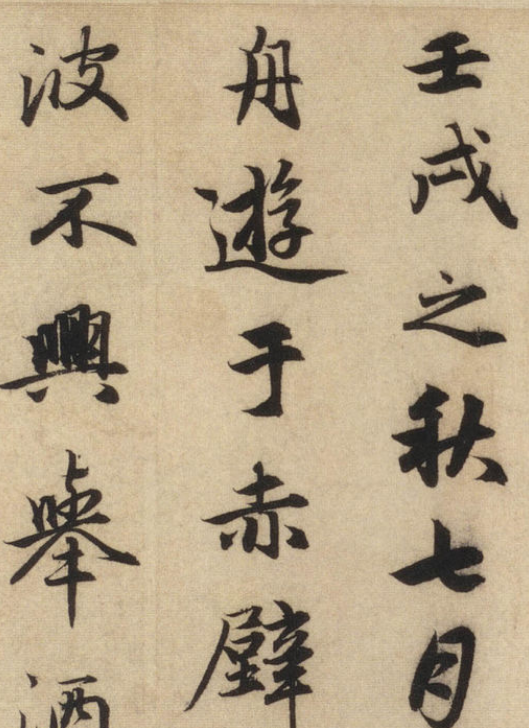 壬戌之秋七月
舟遊于赤壁
波不興舉酒